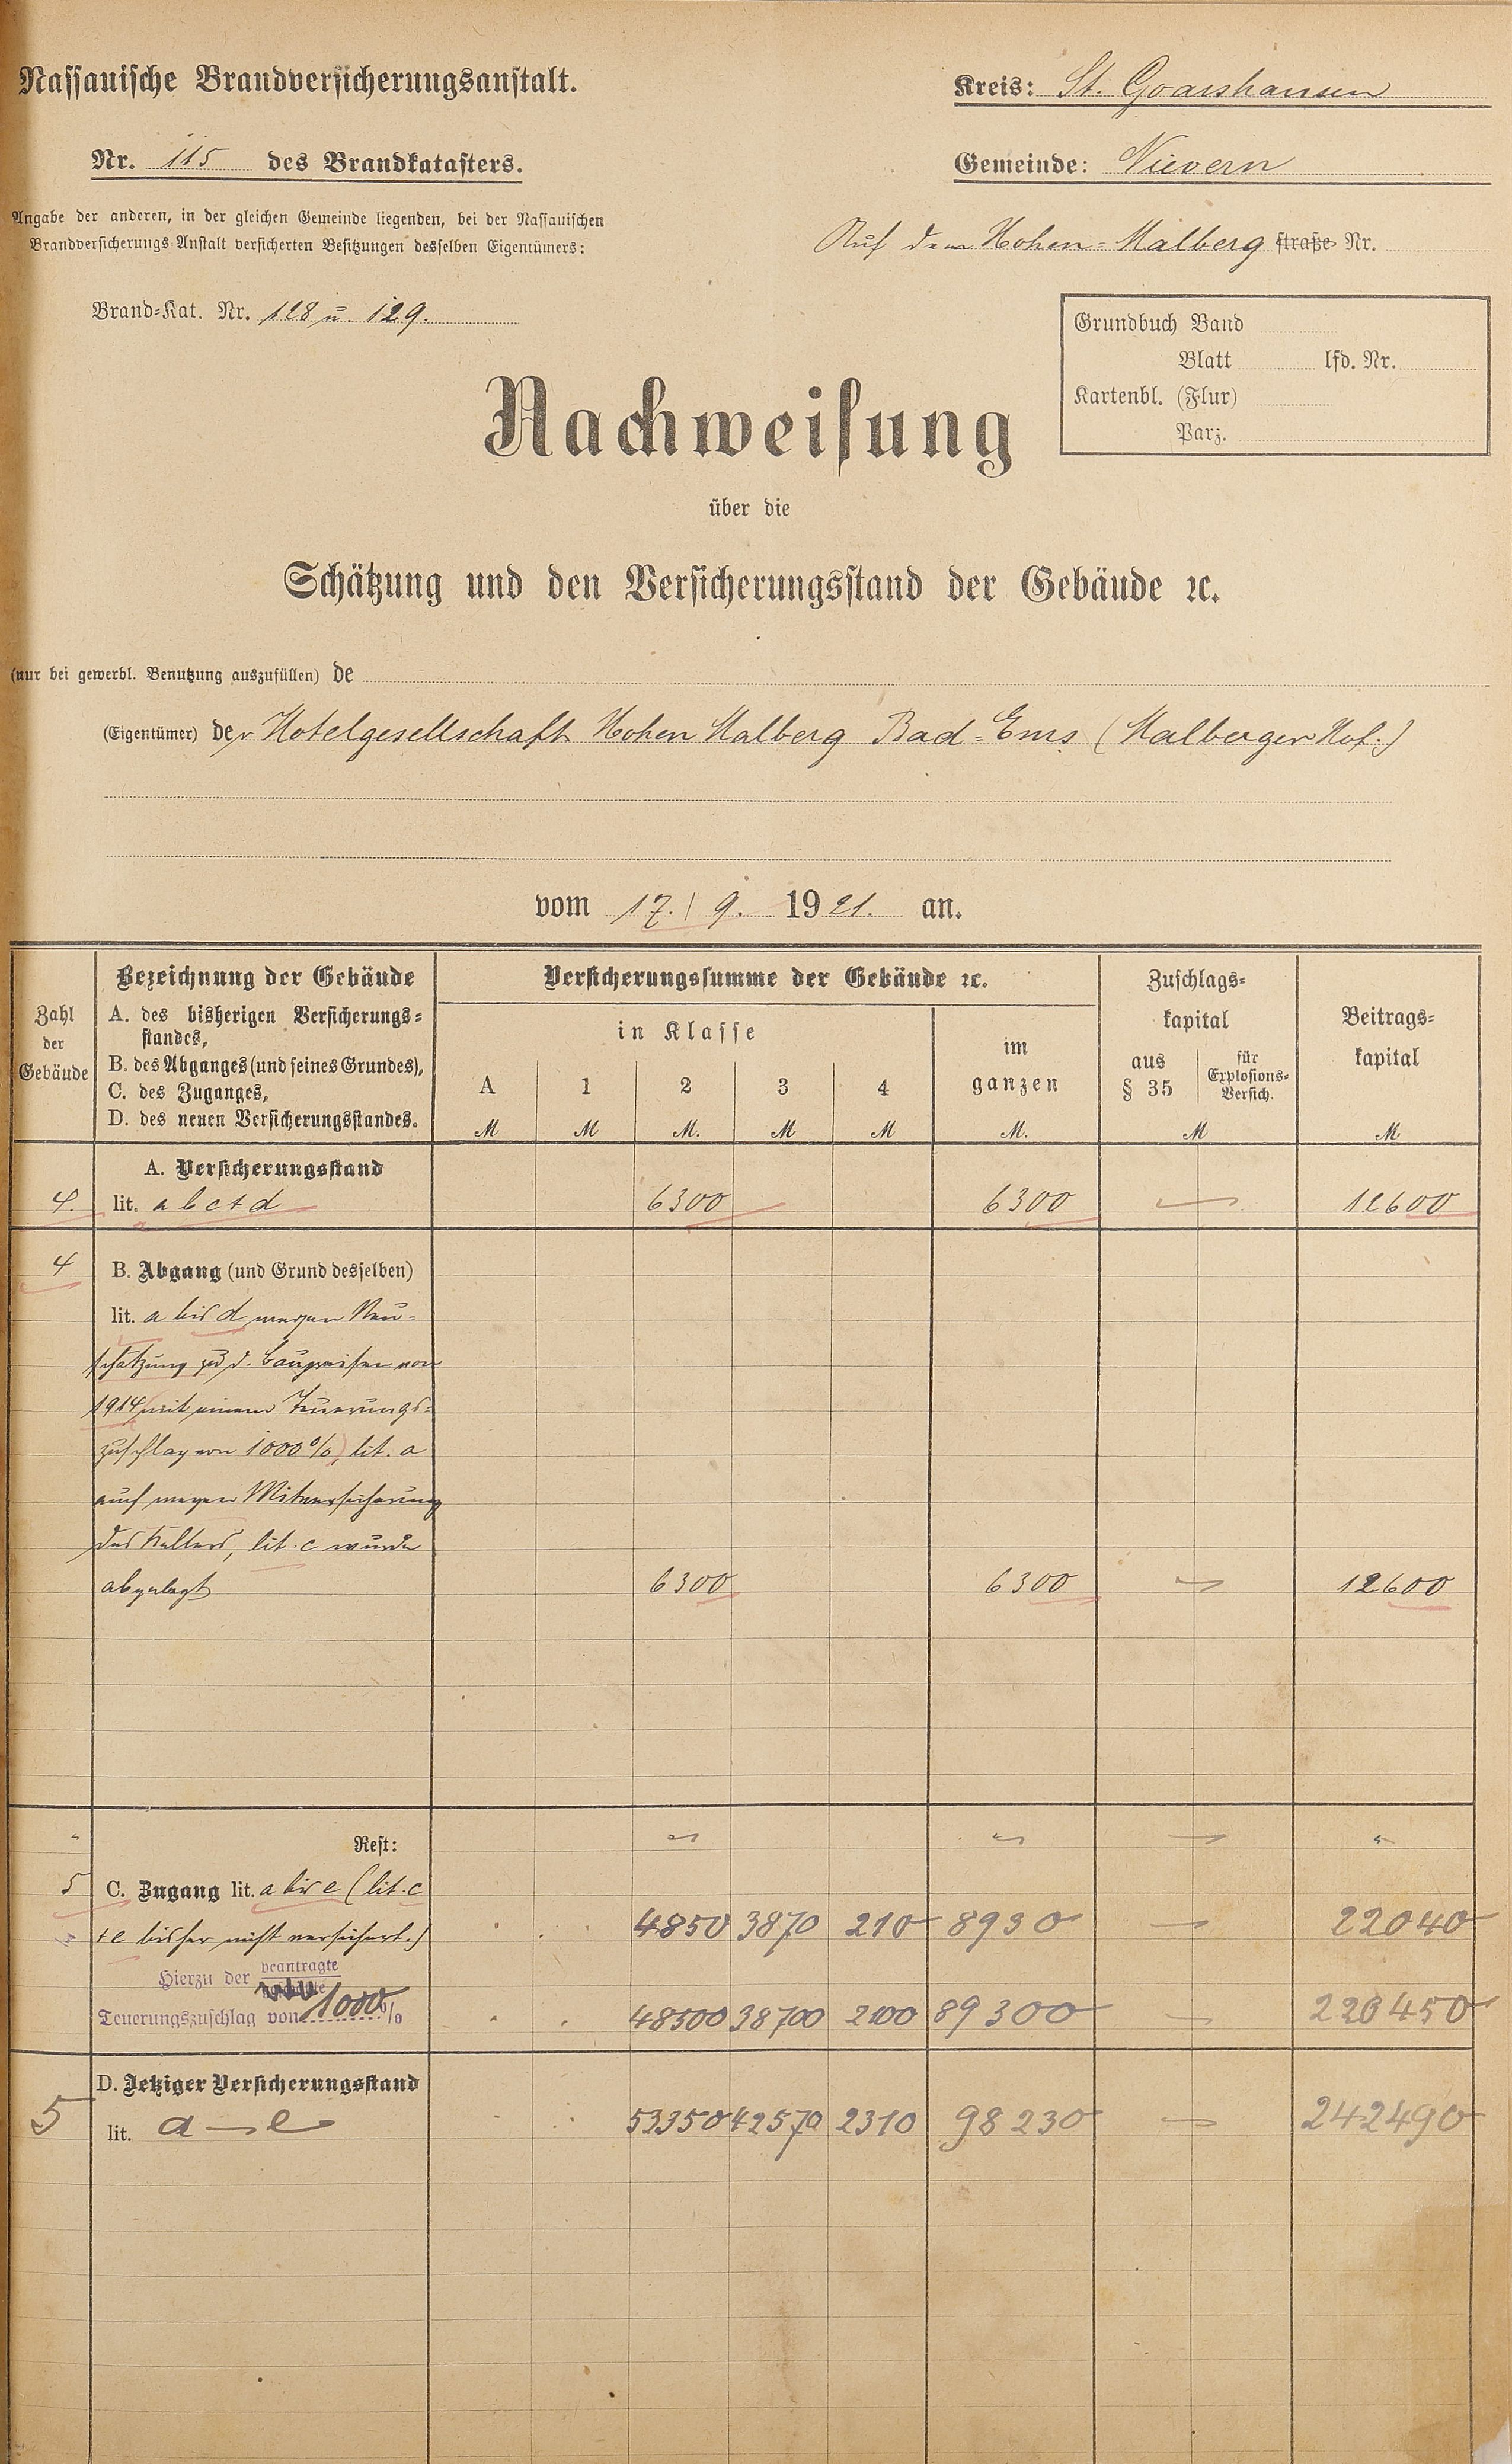 Nassauische Brandversicherungsanstalt.
Kreis: St. Goarshausen
Nr. 115 des Brandkatasters.
Gemeinde: Nievern
Angabe der anderen, in der gleichen Gemeinde liegenden, bei der Nassauischen
Brandversicherungs-Anstalt versicherten Besitzungen desselben Eigentümers:
Auf dem Hohen-Malberg straße Nr.
Brand-Kat. Nr. 128 u. 129.
Grundbuch Band
Blatt lfd. Nr.
Kartenbl. (Flur)
Parz.
Nachweisung
über die
Schätzung und den Versicherungsstand der Gebäude ꝛc.
(nur bei gewerbl. Benutzung auszufüllen) de
(Eigentümer) der Hotelgesellschaft Hohen Malberg Bad-Ems (Malberger Hof.)
vom 17./9. 1921. an.
Zahl der Gebäude
Bezeichnung der Gebäude
A. des bisherigen Versicherungs-
standes,
B. des Abganges (und seines Grundes),
C. des Zuganges,
D. des neuen Versicherungsstandes.
Versicherungssumme der Gebäude ꝛc.
in Klasse
A 1 2 3 4
im ganzen
Zuschlags-
kapital
aus § 35
für Explosions-Versich.
Beitrags-
kapital
M M M. M M M. M M
A. Versicherungsstand
4. lit. a b c + d 6300 6300 — 12600
4 B. Abgang (und Grund desselben)
lit. a bis d wegen Neu-
schätzung zu d. Baupreisen von
1914 mit einem Teuerungs-
zuschlag von 1000%, lit. a
auch wegen Mitversicherung
des Kellers, lit. c wurde
abgelegt 6300 6300 — 12600
Rest: — — — "
5 C. Zugang lit. a bis e (lit. c
+ e bisher nicht versichert.) 4850 3870 210 8930 — 22040
Hierzu der beantragte
Teuerungszuschlag von 1000% 48500 38700 2100 89300 — 220450
D. Jetziger Versicherungsstand
5 lit. a — e 53350 42570 2310 98230 — 242490